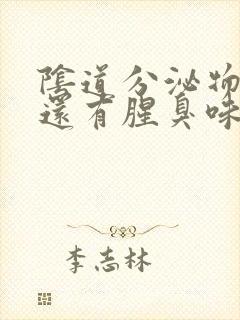 陰道分泌物
還有腥臭味
李志林